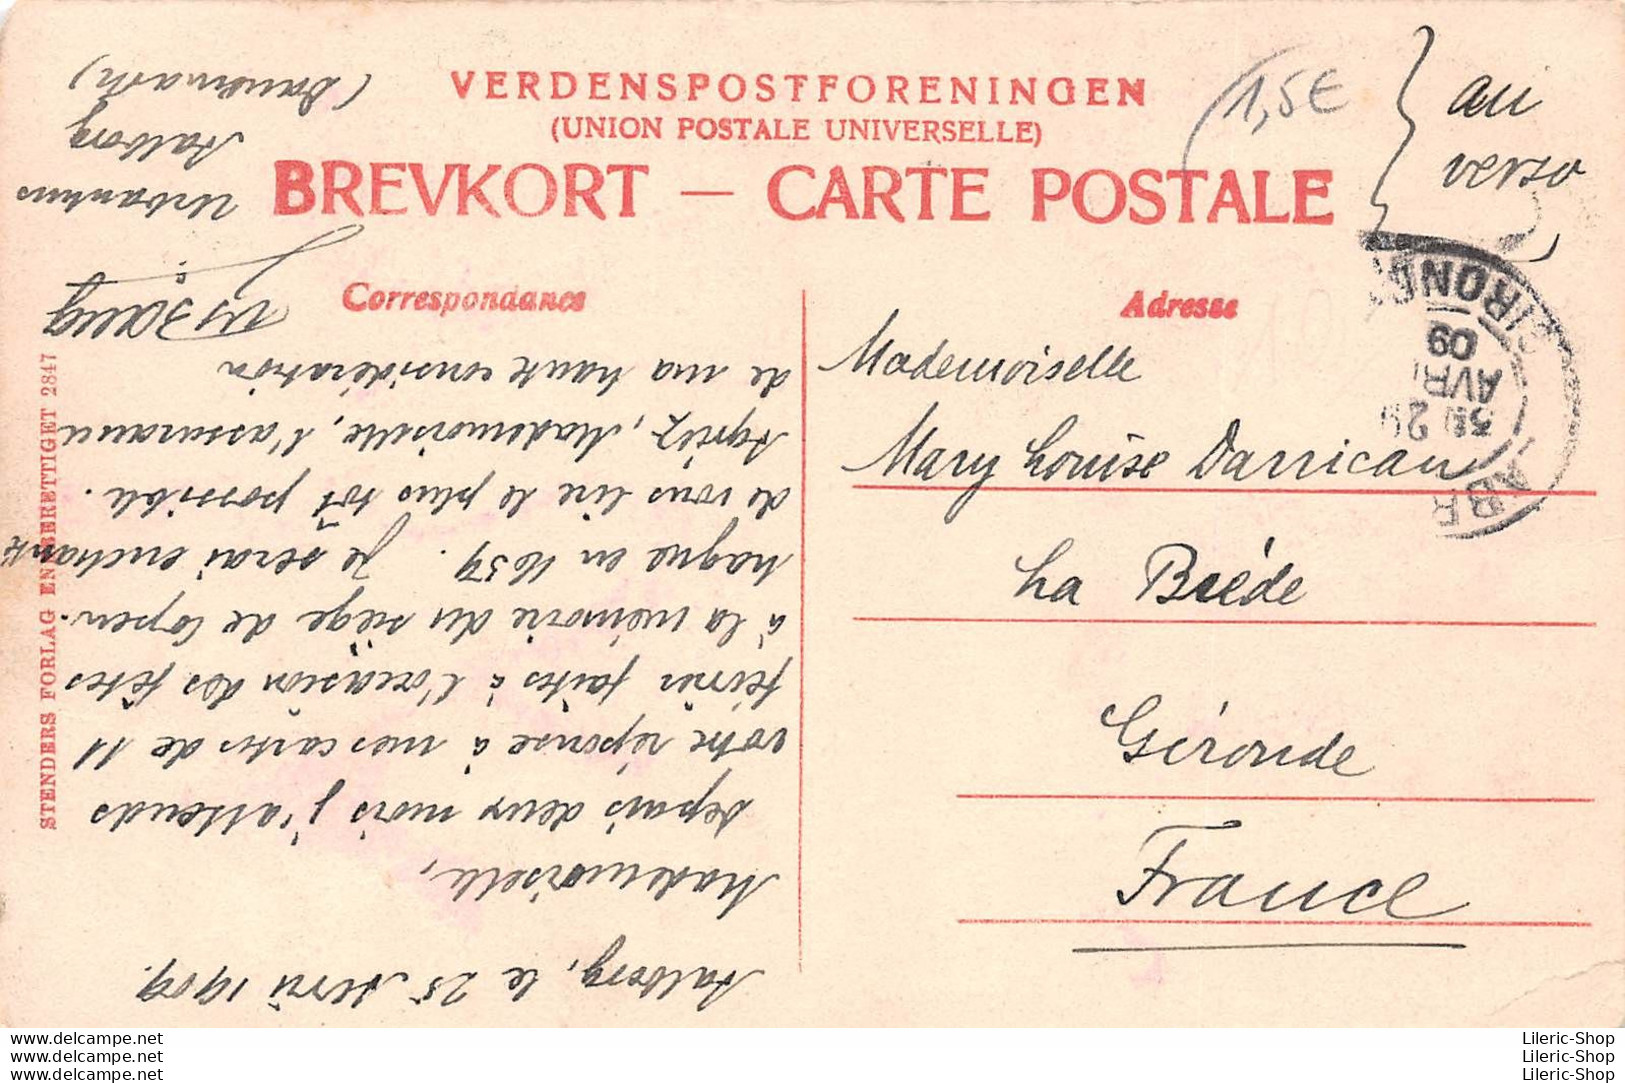 VERDENSPOSTFORENINGEN
(UNION POSTALE UNIVERSELLE)
BREVKORT — CARTE POSTALE
1,5€
au
verso
Correspondance
Adresse
Mademoiselle
Mary Louise Darrican
La Brède
Gironde
France
GIRONDE
09
AVRIL
29
LABR
Aalborg, le 25 Avril 1909.
Mademoiselle,
Depuis deux mois j'attends
votre réponse à mes cartes de 11
février faites à l'occasion des fêtes
à la mémoire du siège de Copen-
hague en 1659. Je serai enchanté
de vous lire le plus tôt possible.
Agréez, Mademoiselle, l'assurance
de ma haute considération
Aalborg
(Danemark)
STENDERS FORLAG ENEBERETTIGET 2847
www.lileric.com
www.lileric.com
www.lileric.com
Lileric-Shop
Lileric-Shop
Lileric-Shop